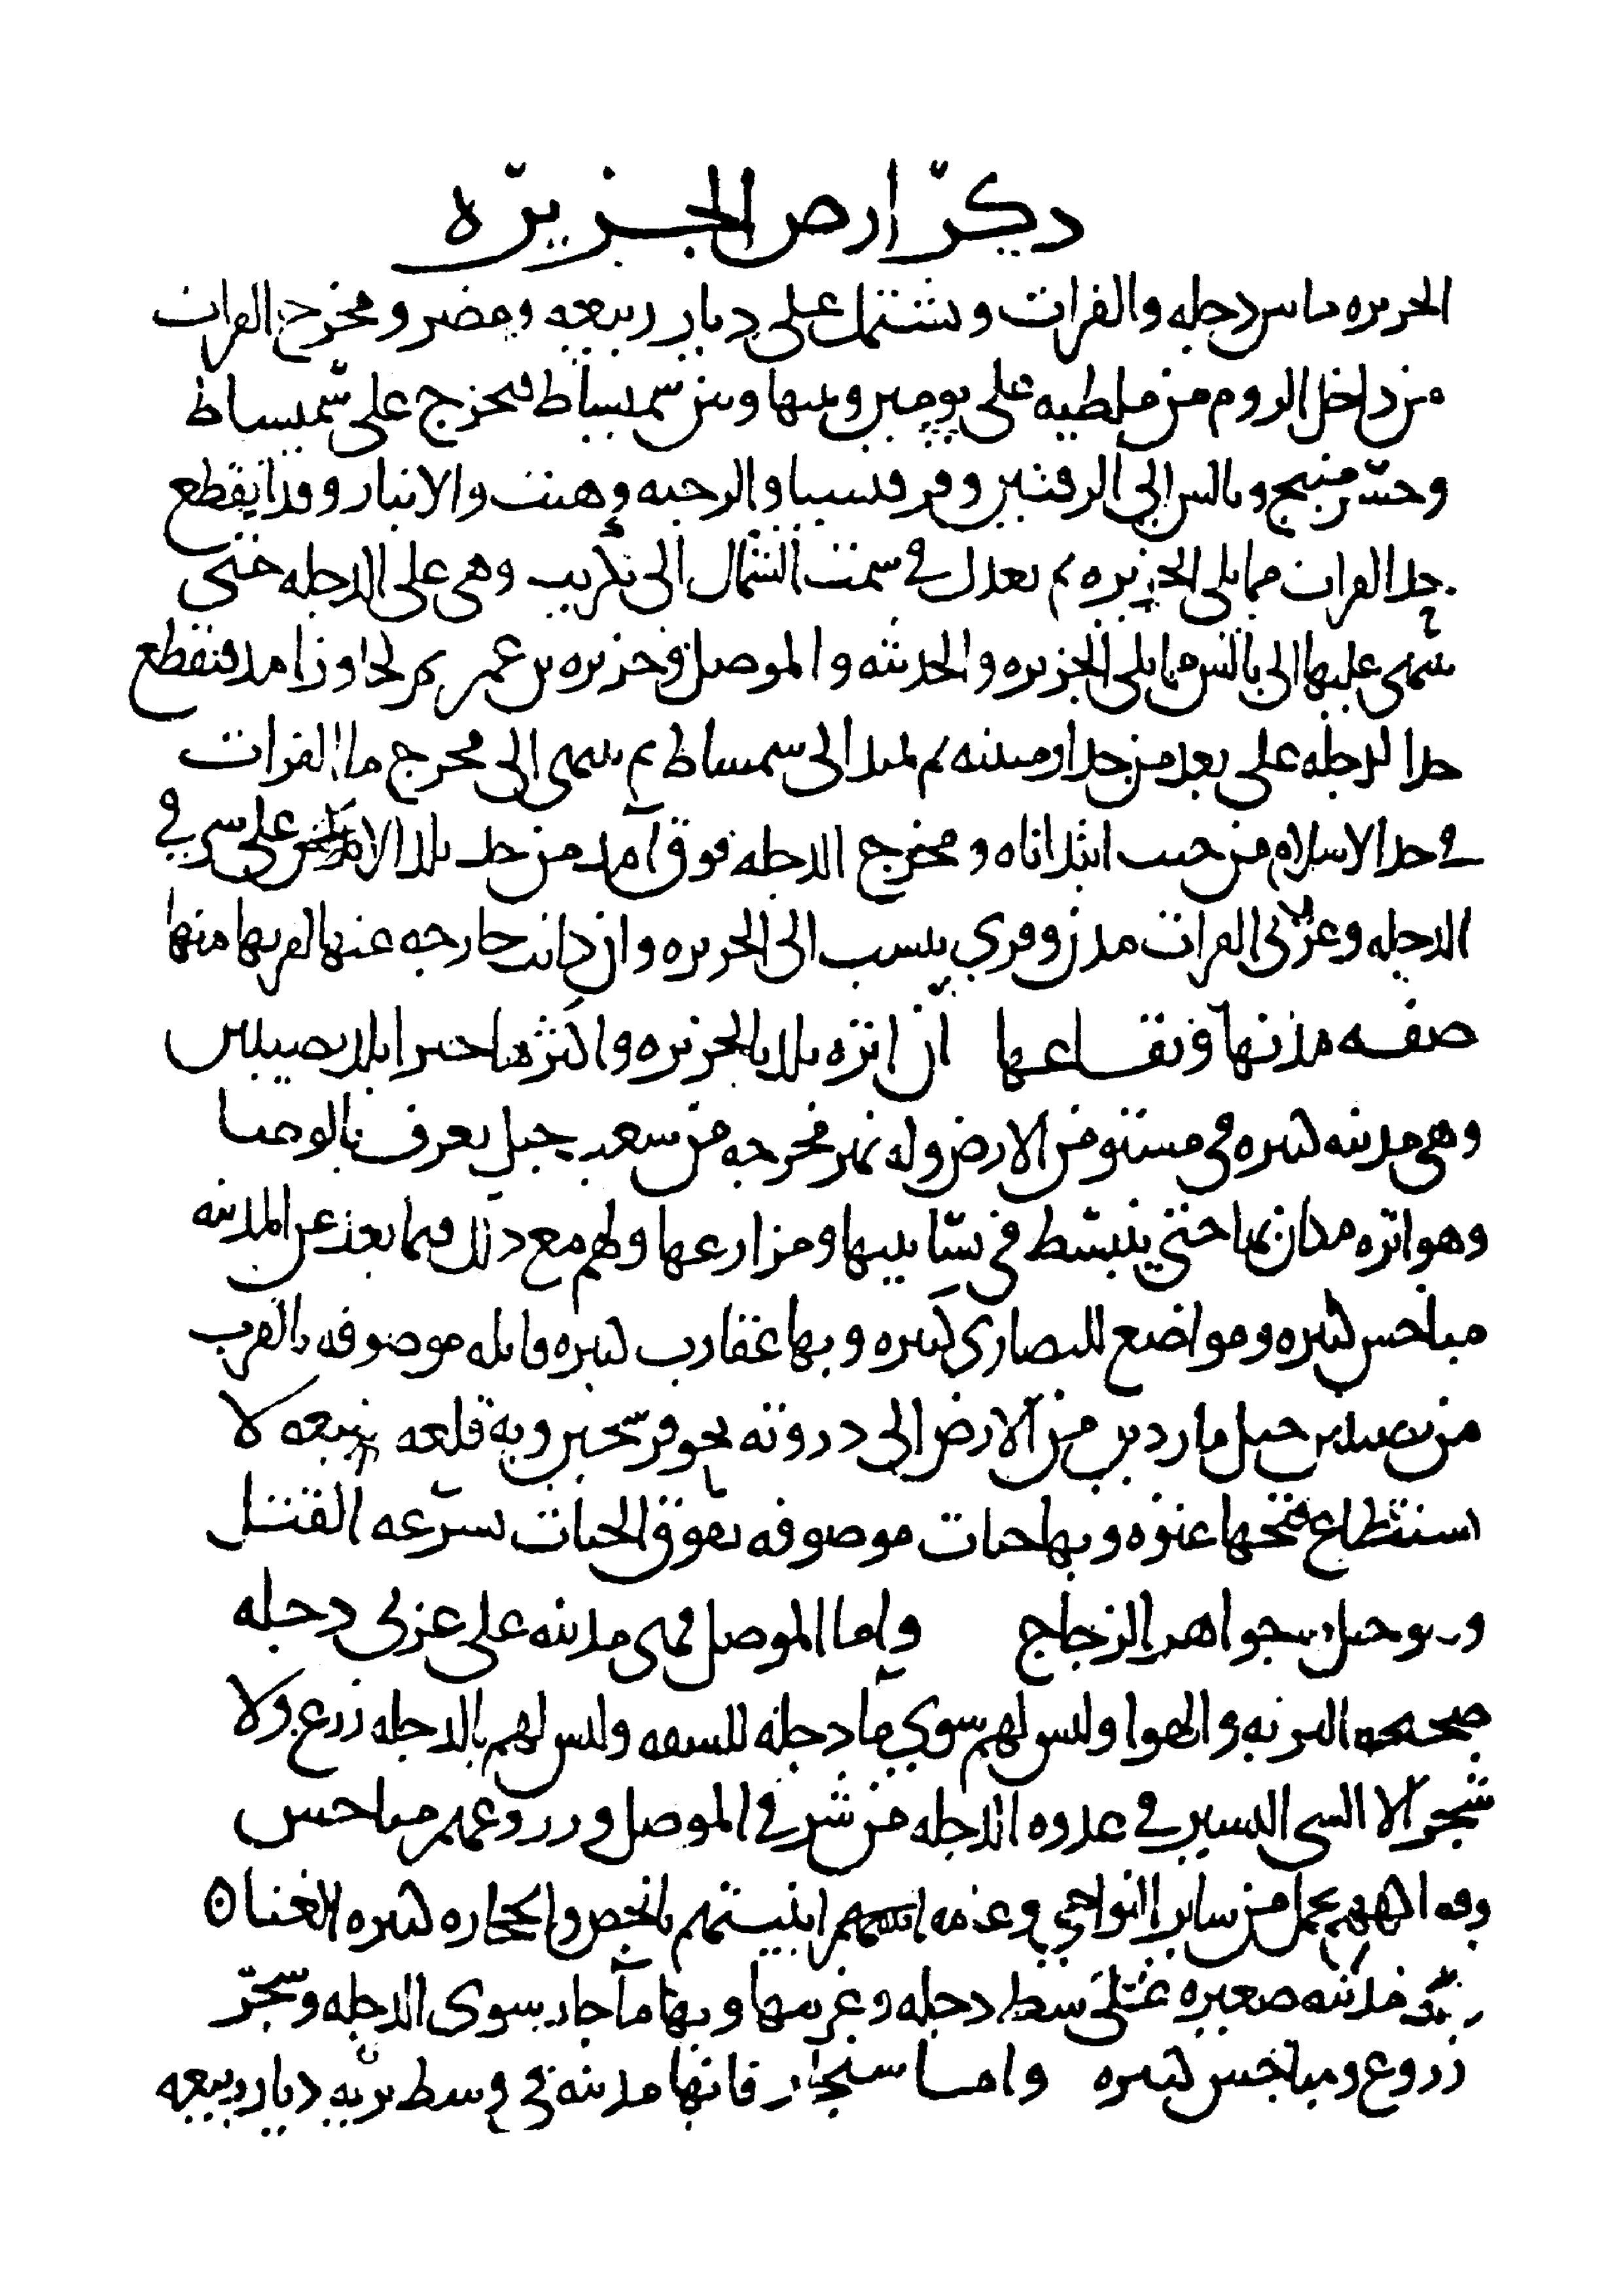 ذكر ارض الجزيره
الجزيره ما بين دجله والفرات وتشتمل على ديار ربيعه ومضر ومخرج الفرات
من داخل الروم من ملطيه على يومين وبينها وبين سميساط فيخرج على سميساط
وجسر منبج وبالس الى الرقتين وقرقيسيا والرحبه وهيت والانبار وقد انقطع
حد الفرات مما يلى الجزيره ثم يعدل في سمت الشمال الى تكريت وهى على الدجله حتى
ينتهى عليها الى بالس مما يلى الجزيره والحديثه والموصل وجزيره بن عمر ثم يتجاوز امد فينقطع
حد الدجله على بعد من حد ارمينيه ثم يمتد الى سميساط ثم ينتهى الى مخرج ما الفرات
في حد الاسلام من حيث ابتداناه ومخرج الدجله فوق آمد من حد بلد الارمن على شرقي
الدجله وغربى الفرات مدن وقرى ينسب الى الجزيره وان كانت خارجه عنها لقربها منها
صفه مدنها وبقاعها ان انزه بلد بالجزيره واكثرها خضرا بلد نصيبين
وهى مدينه كبيره في مستو من الارض وله نهر مخرجه من شعب جبل يعرف ببالوسا
وهو انزه مكان بها حتى ينبسط في بساتينها ومزارعها ولهم مع ذلك فيما بعد عن المدينه
مباخس كثيره ومواضع للنصارى كثيره وبها عقارب كثيره قاتله موصوفه بالقرب
من نصيبين جبل ماردين من الارض الى ذروته نحو فرسخين وبه قلعه منيعه لا
يستطاع فتحها عنوه وبها حيات موصوفه تفوق الحيات بسرعه القتل
وبه جبل به جواهر الزجاج واما الموصل فهى مدينه على غربى دجله
صحيحه التربه والهوا وليس لهم سوى ما دجله للسقيه وليس لهم بالدجله زرع ولا
شجر الا الشى اليسير في عدوه الدجله من شرقي الموصل وزروعهم مباخس
وفواكههم تحمل من ساير النواحي وعامه ابنيتهم بالجص والحجاره كثيره الغناه
بلد مدينه صغيره على شط دجله وغربيها وبها ما جار سوى الدجله وشجر
زروع ومباخس كثيره واما سنجار فانها مدينه في وسط بريه ديار ربيعه